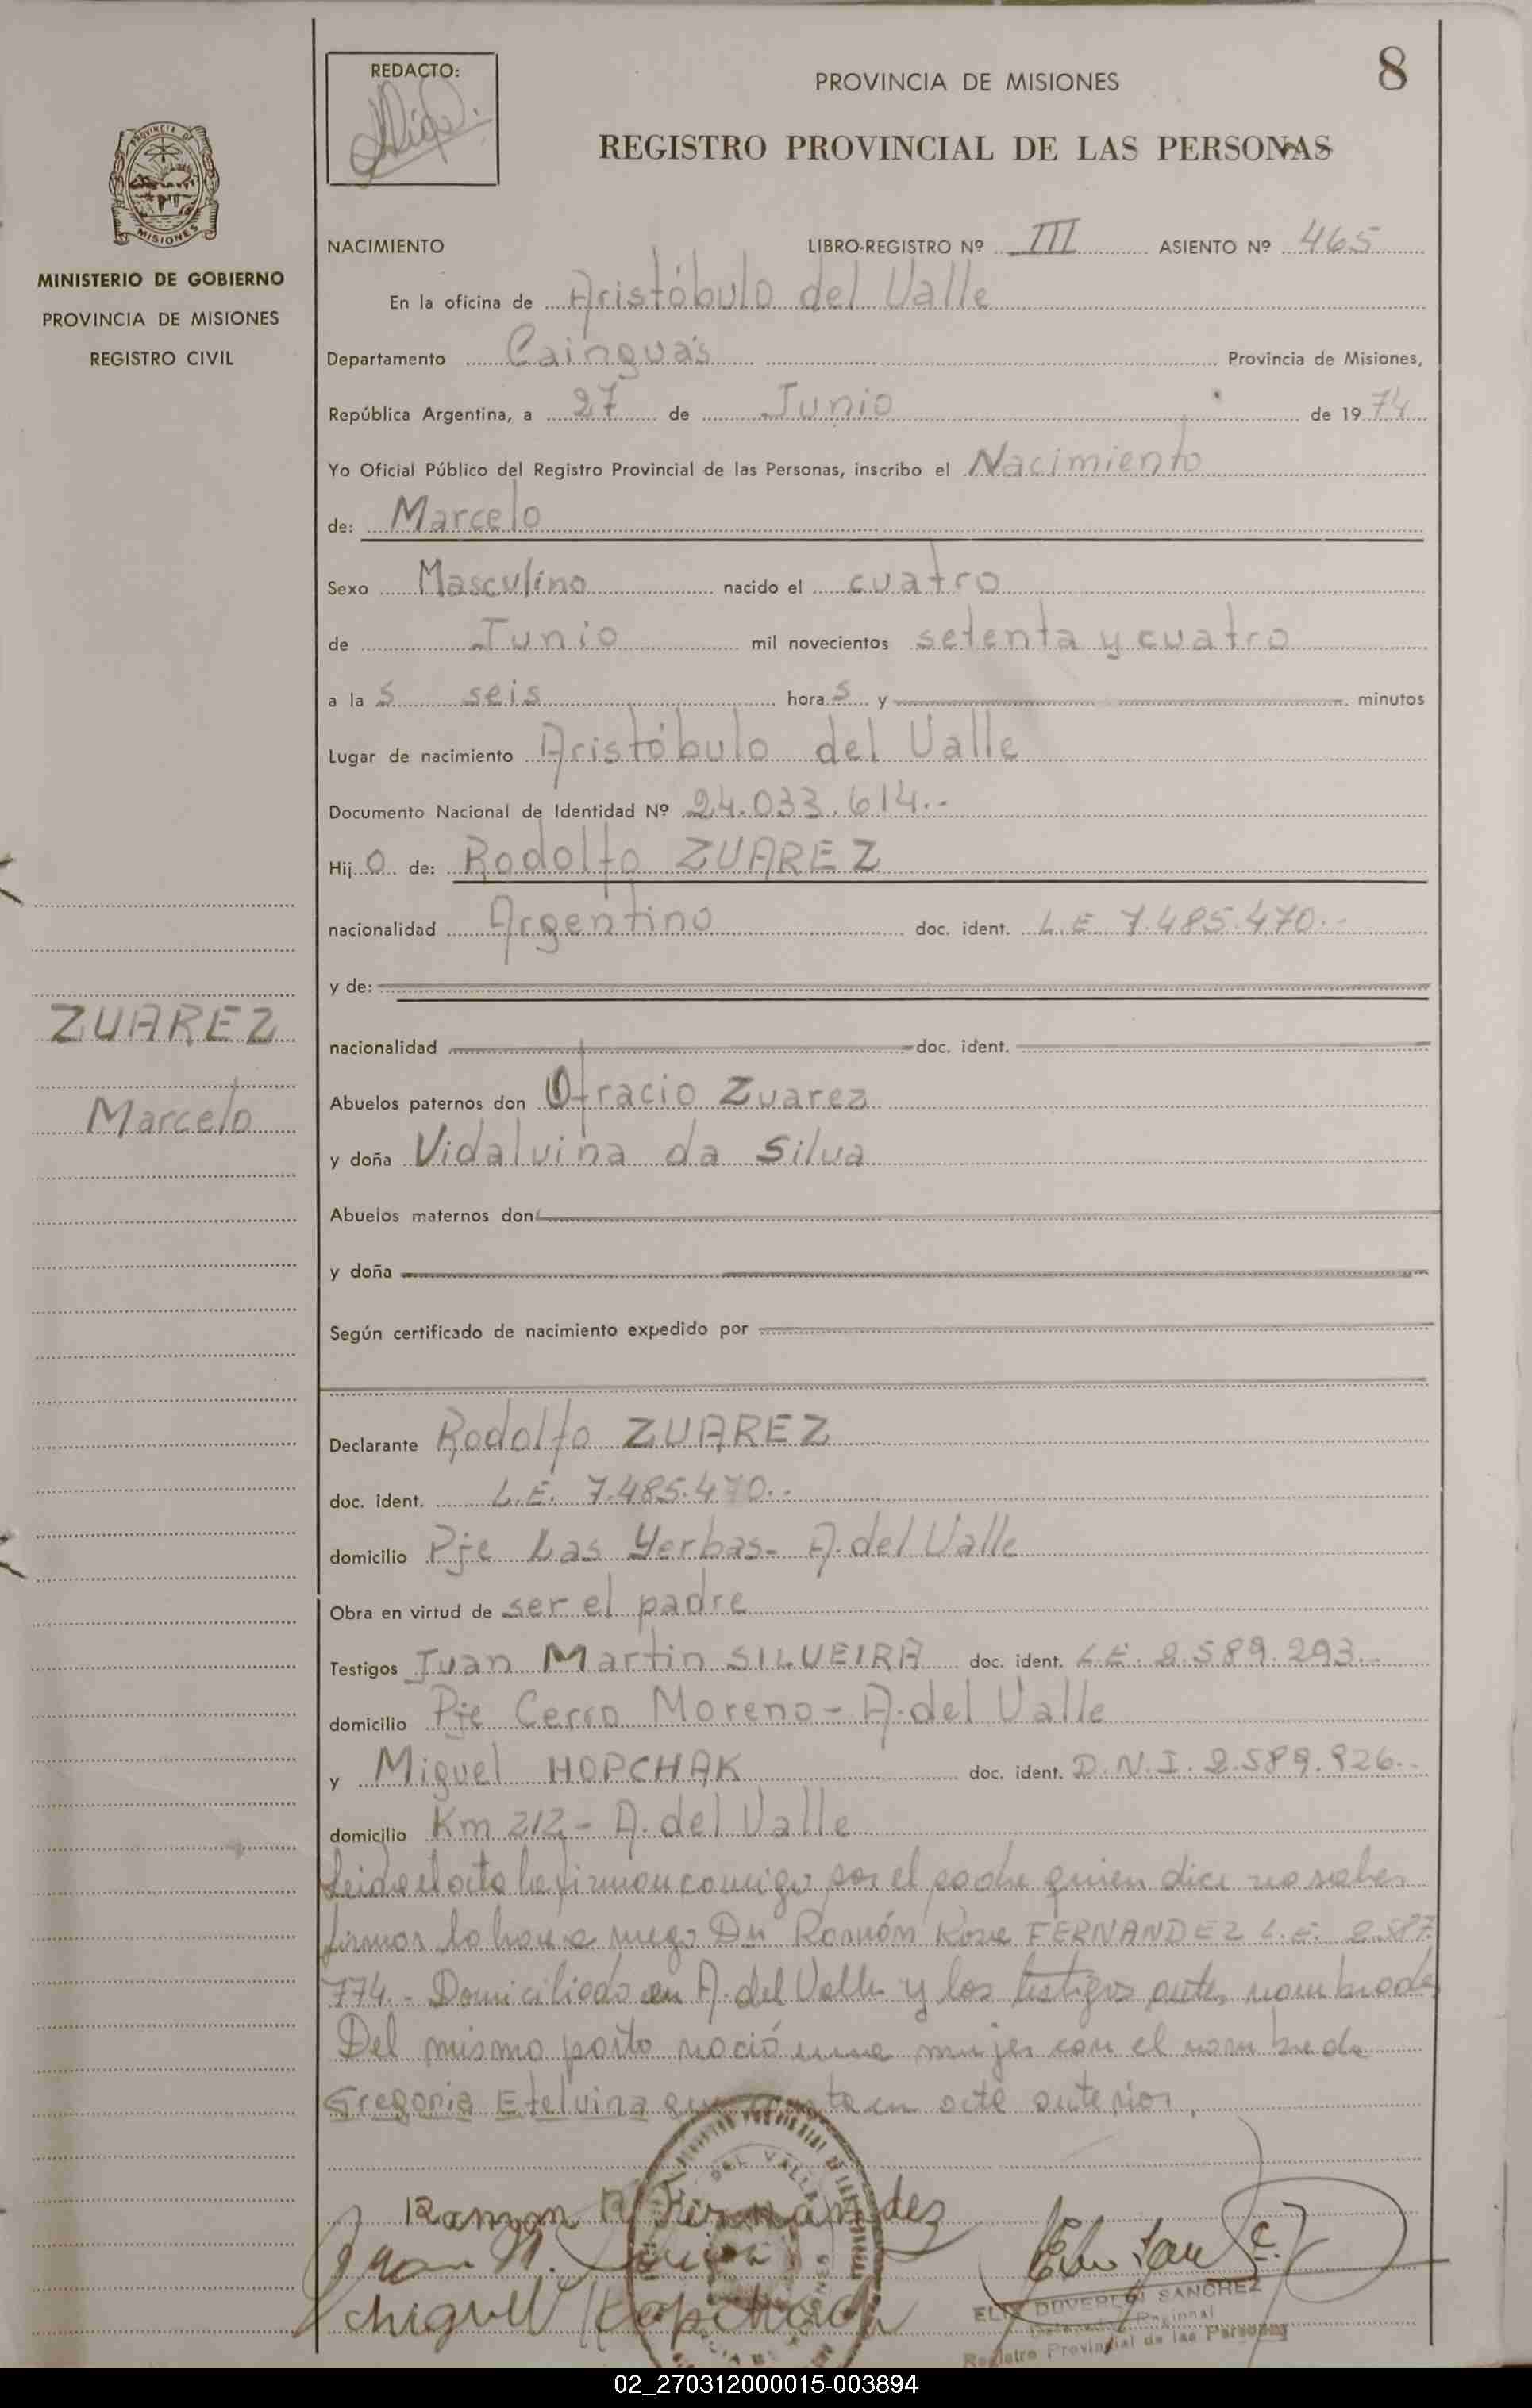 8
REDACTO:
PROVINCIA DE MISIONES
REGISTRO PROVINCIAL DE LAS PERSONAS
PROVINCIA DE
MISIONES
MINISTERIO DE GOBIERNO
PROVINCIA DE MISIONES
REGISTRO CIVIL
NACIMIENTO LIBRO-REGISTRO Nº III ASIENTO Nº 465
En la oficina de Aristóbulo del Valle
Departamento Cainguás Provincia de Misiones,
República Argentina, a 27 de Junio de 1974
Yo Oficial Público del Registro Provincial de las Personas, inscribo el Nacimiento
de: Marcelo
Sexo Masculino nacido el cuatro
de Junio mil novecientos setenta y cuatro
a las seis horas y minutos
Lugar de nacimiento Aristóbulo del Valle
Documento Nacional de Identidad Nº 24.033.614.-
Hijo de: Rodolfo ZUAREZ
nacionalidad Argentino doc. ident. L.E. 7.485.470.-
y de:
ZUAREZ
nacionalidad doc. ident.
Marcelo
Abuelos paternos don Ofracio Zuarez
y doña Vidalvina da Silva
Abuelos maternos don
y doña
Según certificado de nacimiento expedido por
Declarante Rodolfo ZUAREZ
doc. ident. L.E. 7.485.470.-
domicilio Pje Las Yerbas- A. del Valle
Obra en virtud de ser el padre
Testigos Juan Martin SILVEIRA doc. ident. L.E. 2.589.293.-
domicilio Pje Cerro Moreno- A. del Valle
y Miguel HOPCHAK doc. ident. D.N.I. 2.589.926.-
domicilio Km 212- A. del Valle
Leida el acta la firman comigo por el padre quien dice no saber
firmar lo hace a ruego Dn Ramón Rosa FERNANDEZ L.E. 2.587.
774.- Domiciliado en A. del Valle y los testigos antes nombrados
Del mismo parto nació una mujer con el nombre de
Gregoria Etelvina en acta anterior.
Ramon R Fernandez
Juan M.
DEL VALLE
SANCHEZ
Registro Provincial de las Personas
02_270312000015-003894